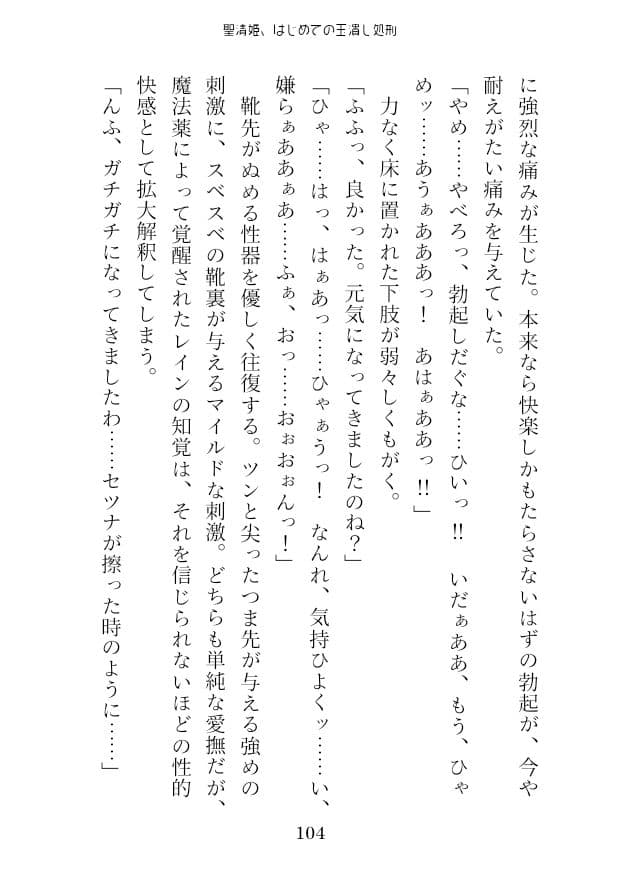 聖清姫、はじめての玉潰し処刑
に強烈な痛みが生じた。本来なら快楽しかもたらさないはずの勃起が、今や
耐えがたい痛みを与えていた。
「やめ……やべろっ、勃起しだぐな……ひいっ‼　いだぁああ、もう、ひゃ
めッ……あうぁあああっ！　あはぁああっ‼」
　力なく床に置かれた下肢が弱々しくもがく。
「ふふっ、良かった。元気になってきましたのね？」
「ひゃ……はっ、はぁあっ……ひゃぁうっ！　なんれ、気持ひよくッ……い、
嫌らぁああぁあ……ふぁ、おっ……おぉおぉんっ！」
　靴先がぬめる性器を優しく往復する。ツンと尖ったつま先が与える強めの
刺激に、スベスベの靴裏が与えるマイルドな刺激。どちらも単純な愛撫だが、
魔法薬によって覚醒されたレインの知覚は、それを信じられないほどの性的
快感として拡大解釈してしまう。
「んふ、ガチガチになってきましたわ……セツナが擦った時のように……」
104